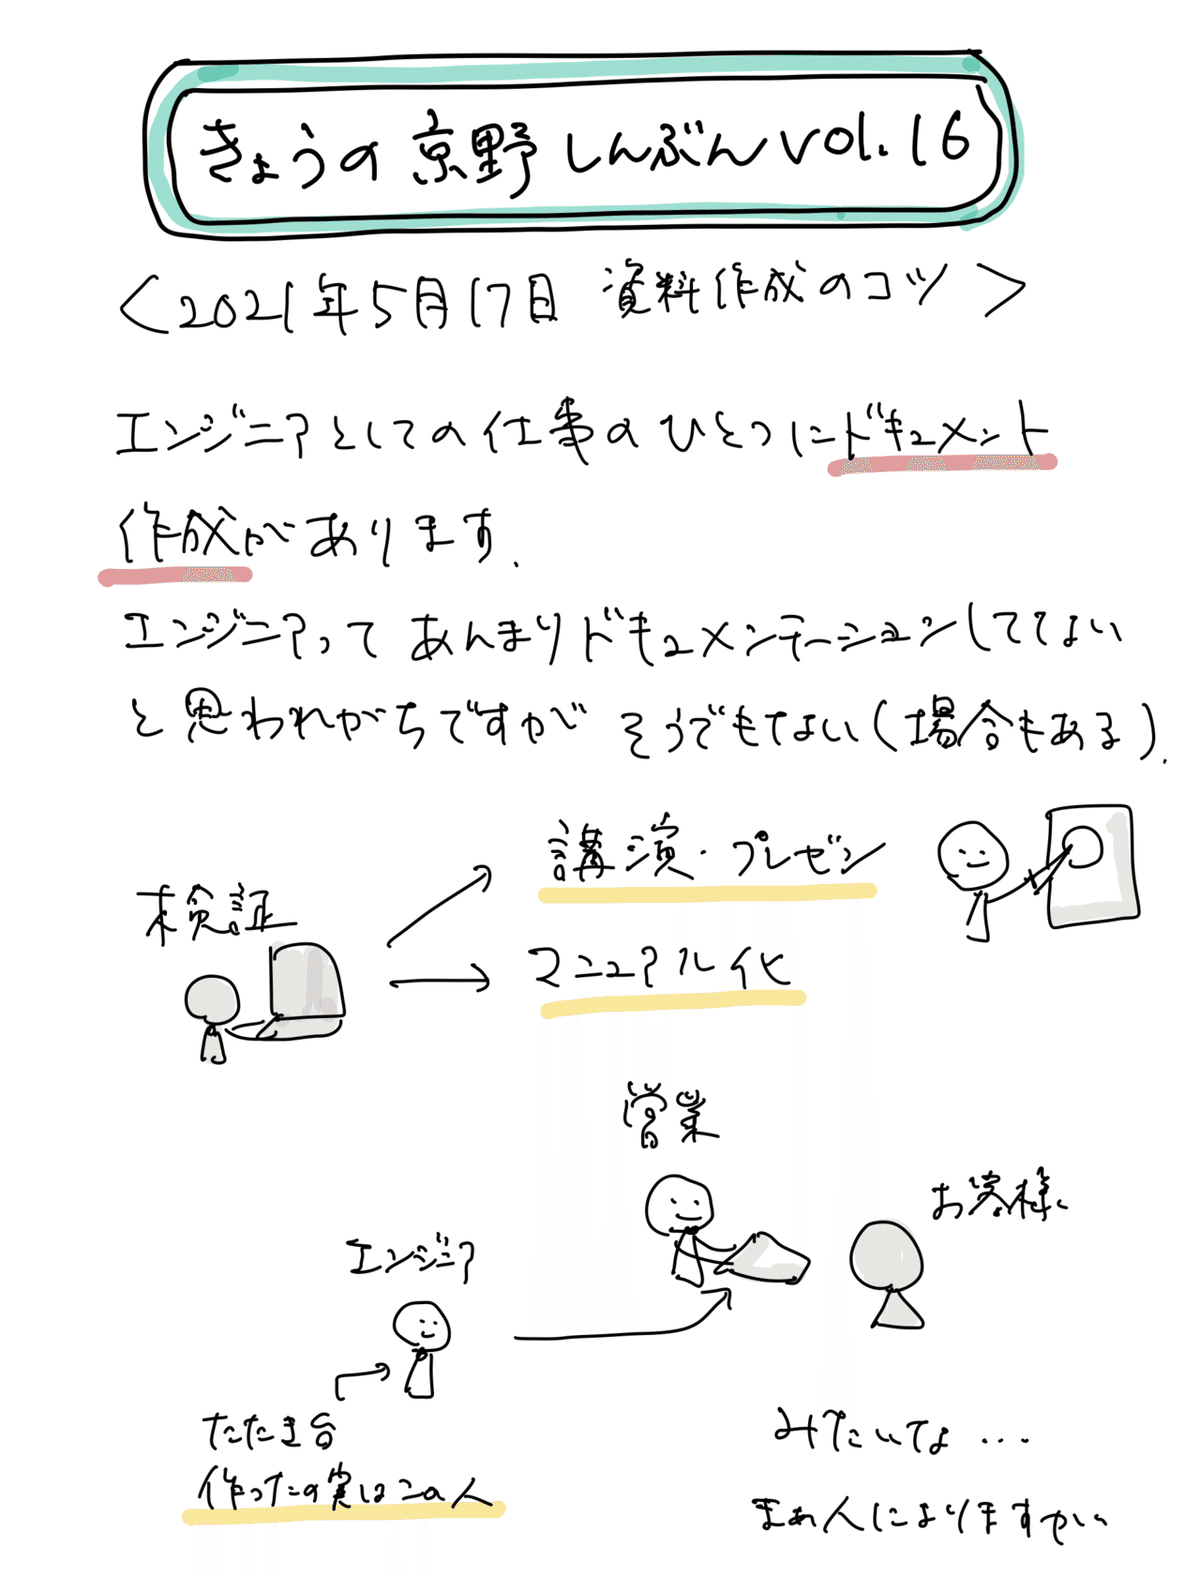 きょうの京野しんぶんvol.16
<2021年5月17日 資料作成のコツ>
エンジニアとしての仕事のひとつにドキュメント
作成があります.
エンジニアってあんまりドキュメンテーションしてない
と思われがちですがそうでもない(場合もある).
検証
講演・プレゼン
マニュアル化
営業
お客様
エンジニア
たたき台
作ったの実はこの人
みたいな…
まぁ人によりますがい